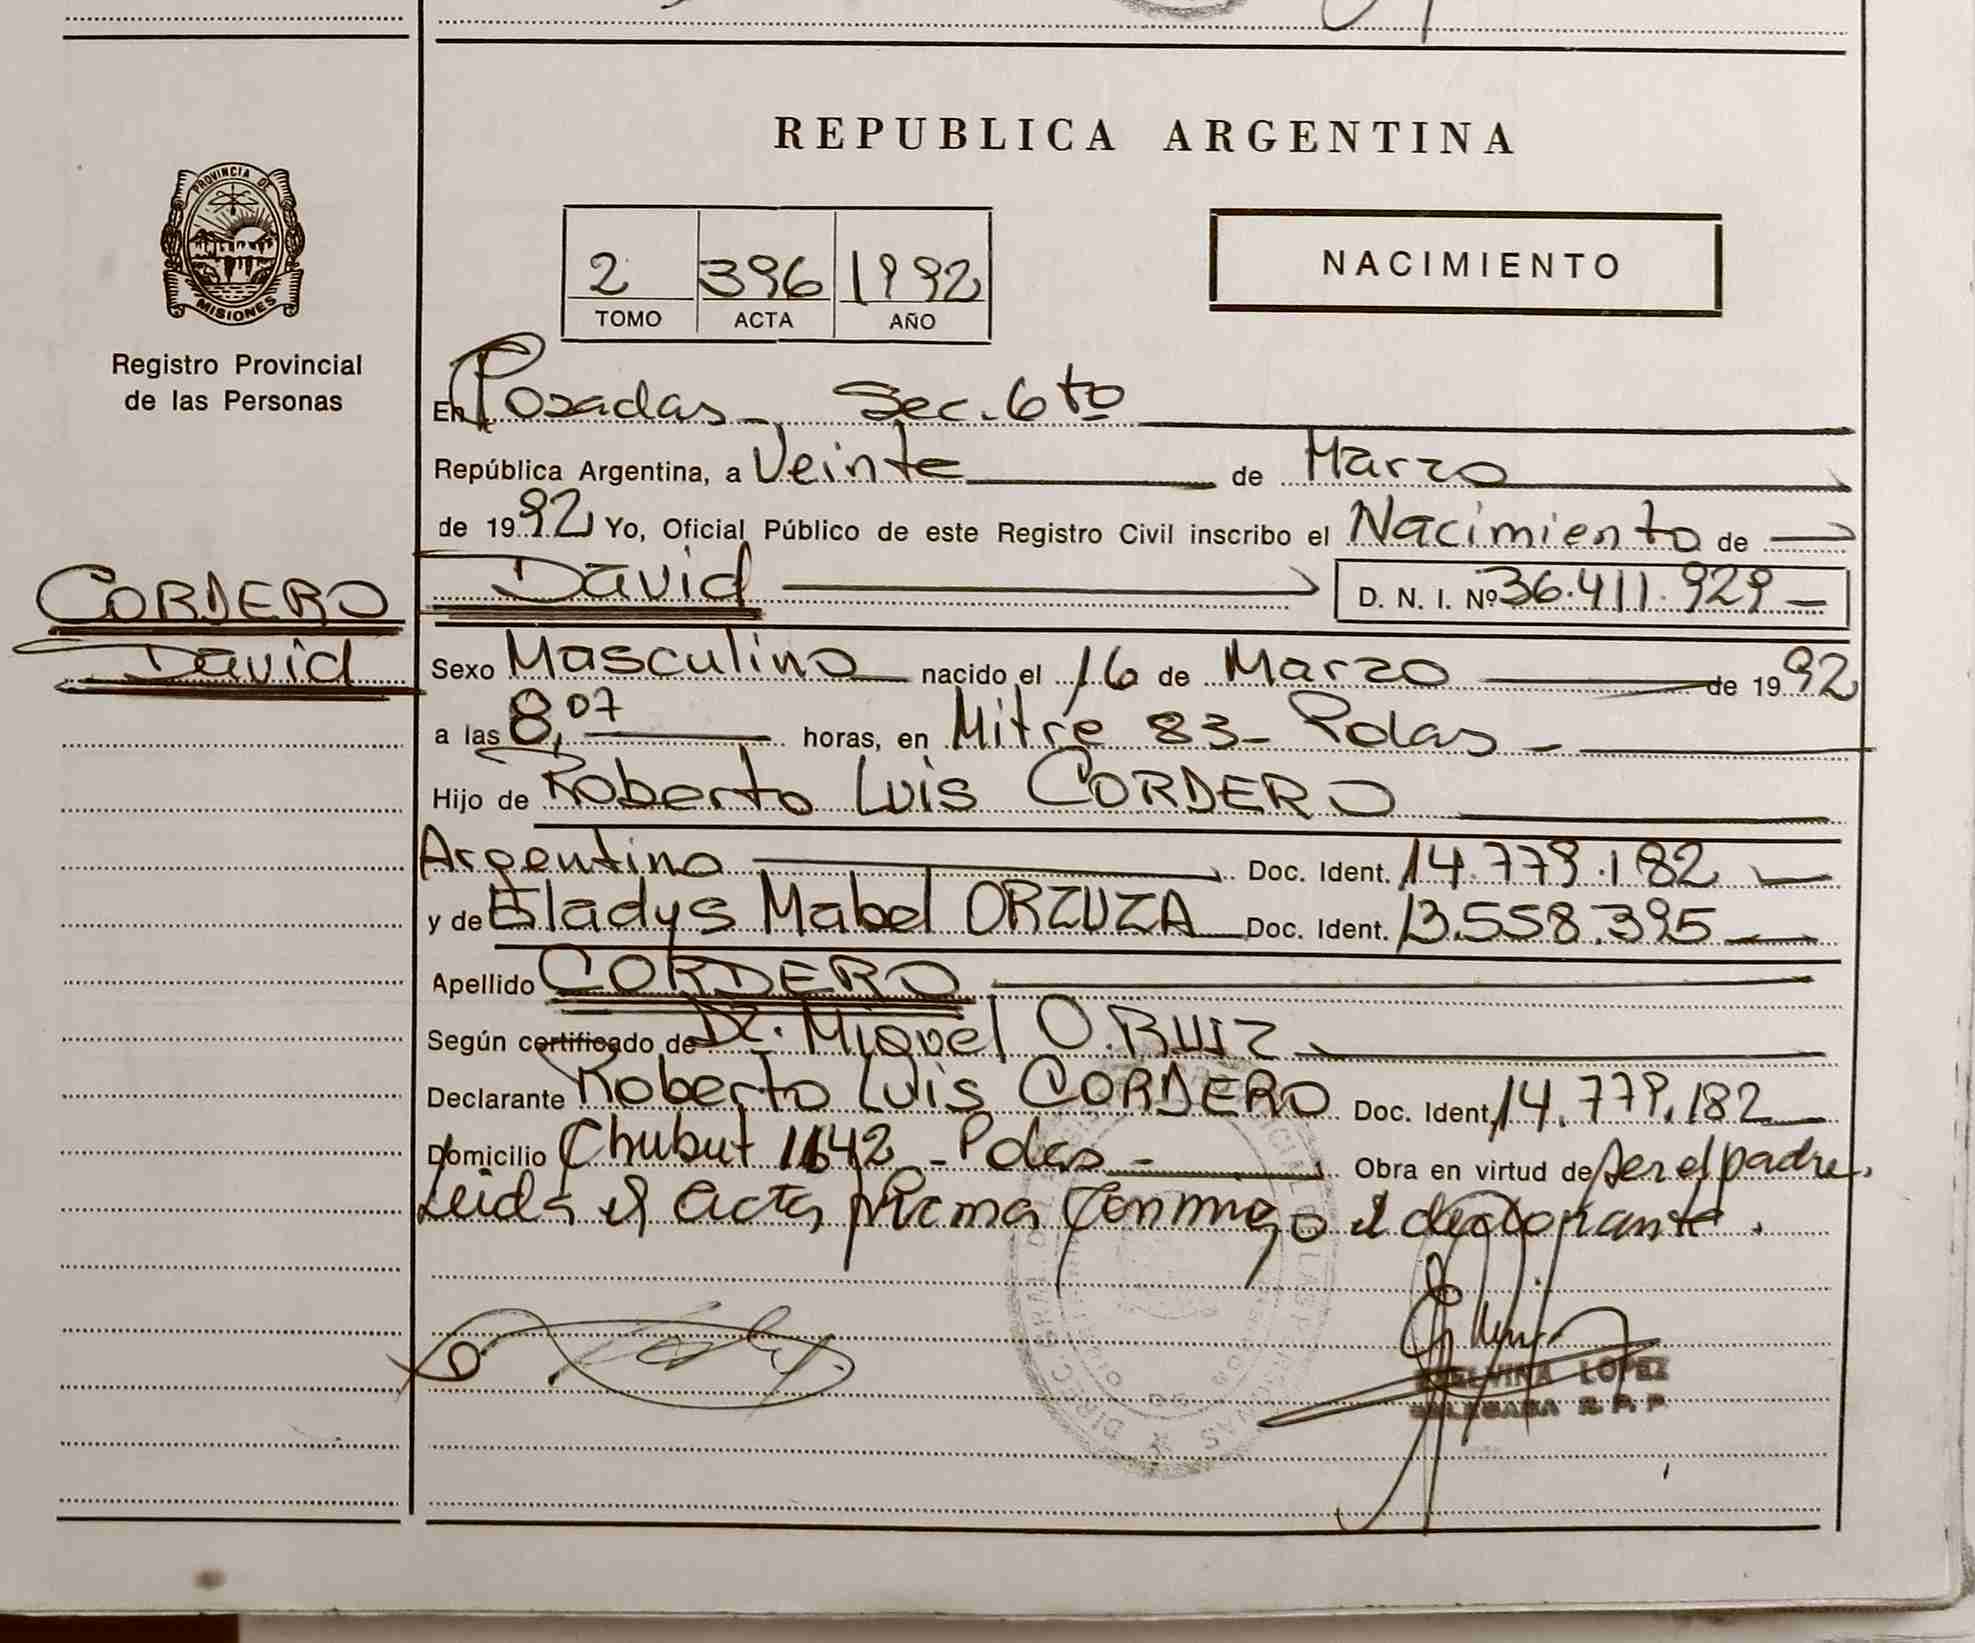 REPUBLICA ARGENTINA
PROVINCIA DE
MISIONES
Registro Provincial
de las Personas
2 396 1992
TOMO ACTA AÑO
NACIMIENTO
En Posadas Sec. 6to
República Argentina, a Veinte de Marzo
de 1992 Yo, Oficial Público de este Registro Civil inscribo el Nacimiento de
CORDERO
David
David D. N. I. Nº 36.411.929
Sexo Masculino nacido el 16 de Marzo de 1992
a las 8,07 horas, en Mitre 83 - Pdas -
Hijo de Roberto Luis CORDERO
Argentino Doc. Ident. 14.779.182
y de Gladys Mabel ORZUZA Doc. Ident. 13.558.395
Apellido CORDERO
Según certificado de Dr. Miguel O. RUIZ
Declarante Roberto Luis CORDERO Doc. Ident. 14.779.182
Domicilio Chubut 1642 - Pdas - Obra en virtud de ser el padre.
Leida el acta firma conmigo el declarante.
LOPEZ
DELEGADA R. P. P.